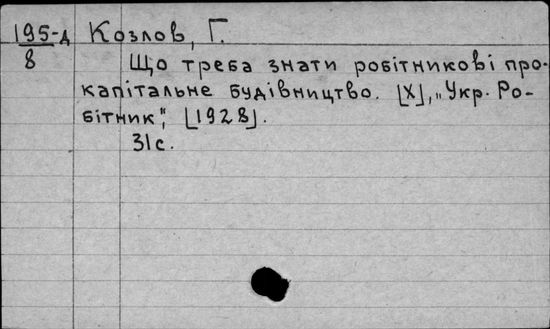 195-д Козлов, Г.
8 Що треба знати робітникові про
капітальне будівництво. [Х], „Укр. Ро-
бітник", [1928].
31с.